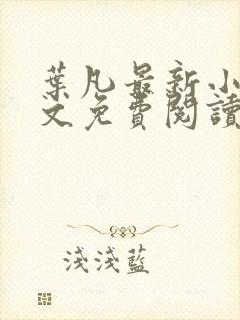 葉凡最新小
文免費閱讀
淺淺藍